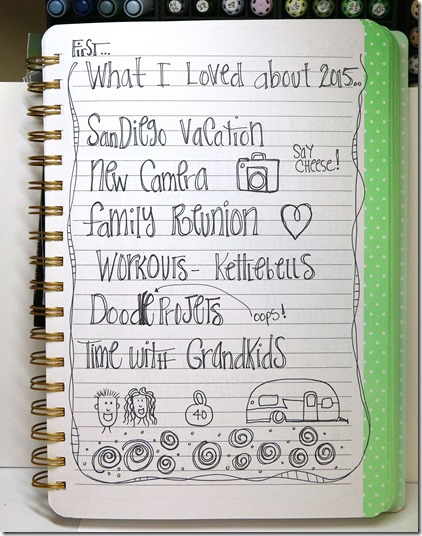 First...
What I Loved about 2015...
SanDiego Vacation
New Camera
SAY CHEESE!
family Reunion
WORKOUTS - Kettlebells
Doodle Projets
oops!
Time with Grandkids
40